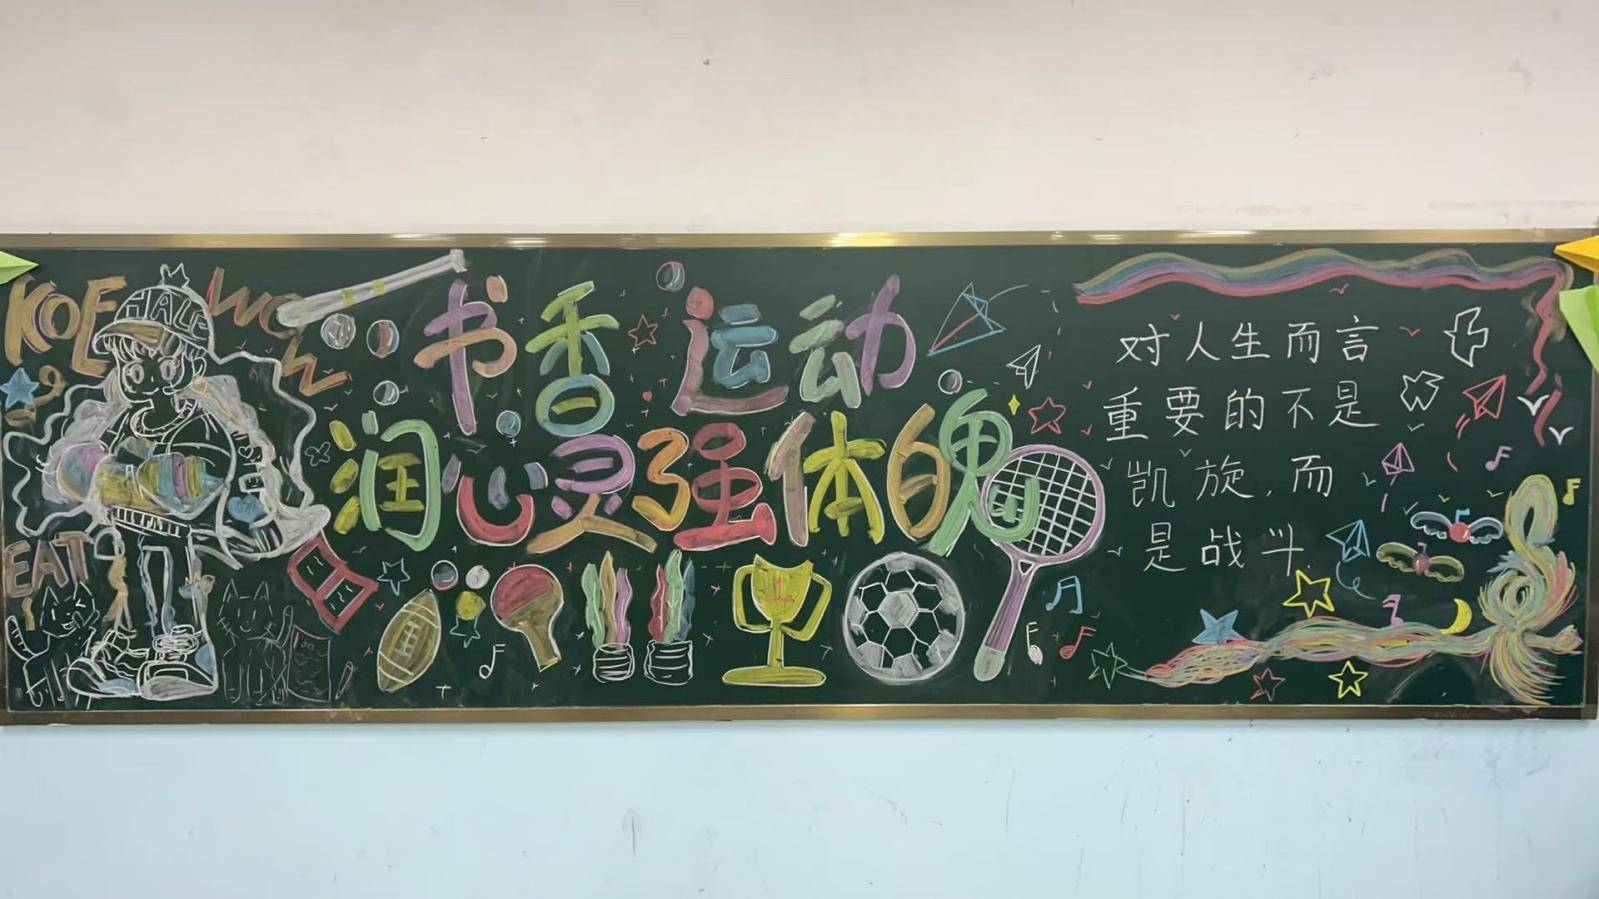 KOE
WOW
HALF
EAT
书香 运动
润心灵强体魄
对人生而言
重要的不是
凯旋,而
是战斗.